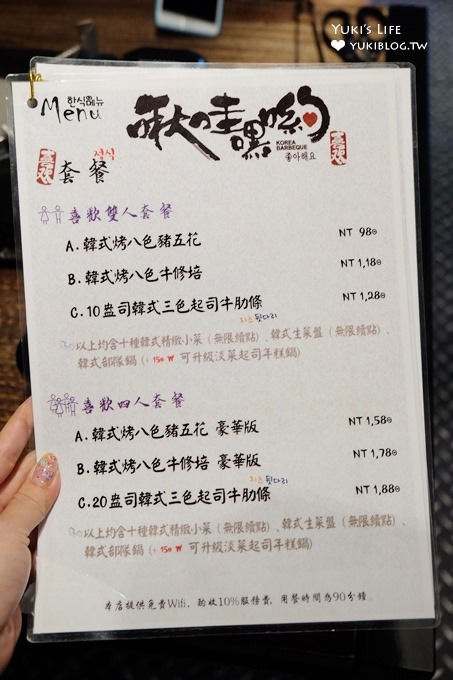 YUKI'S LIFE
YUKIBLOG.TW
한식메뉴
Menu
啾哇嘿喲
KOREA
BARBEQUE
좋아해요
喜歡
喜歡
정식
套餐
喜歡雙人套餐
A.韓式烤八色豬五花 NT 980
B.韓式烤八色牛修培 NT 1,180
C.10盎司韓式三色起司牛肋條 NT 1,280
치즈 뒷다리
以上均含十種韓式精緻小菜(無限續點)、韓式生菜盤(無限續點)、
韓式部隊鍋(+150 ₩ 可升級淡菜起司年糕鍋)
喜歡四人套餐
A.韓式烤八色豬五花 豪華版 NT 1,580
B.韓式烤八色牛修培 豪華版 NT 1,780
C.20盎司韓式三色起司牛肋條 NT 1,880
치즈 뒷다리
以上均含十種韓式精緻小菜(無限續點)、韓式生菜盤(無限續點)、
韓式部隊鍋(+150 ₩ 可升級淡菜起司年糕鍋)
本店提供免費Wifi,酌收10%服務費,用餐時間為90分鐘